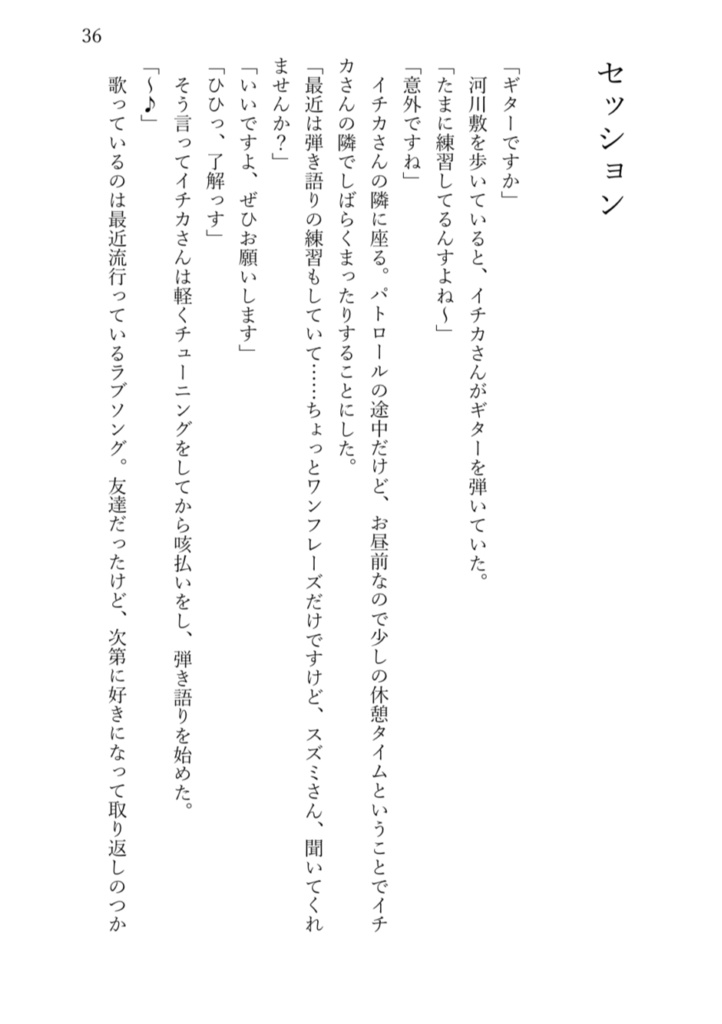 セッション
「ギターですか」
河川敷を歩いていると、イチカさんがギターを弾いていた。
「たまに練習してるんすよね〜」
「意外ですね」
イチカさんの隣に座る。パトロールの途中だけど、お昼前なので少しの休憩タイムということでイチ
カさんの隣でしばらくまったりすることにした。
「最近は弾き語りの練習もしていて……ちょっとワンフレーズだけですけど、スズミさん、聞いてくれ
ませんか？」
「いいですよ、ぜひお願いします」
「ひひっ、了解っす」
そう言ってイチカさんは軽くチューニングをしてから咳払いをし、弾き語りを始めた。
「〜♪」
歌っているのは最近流行っているラブソング。友達だったけど、次第に好きになって取り返しのつか
36